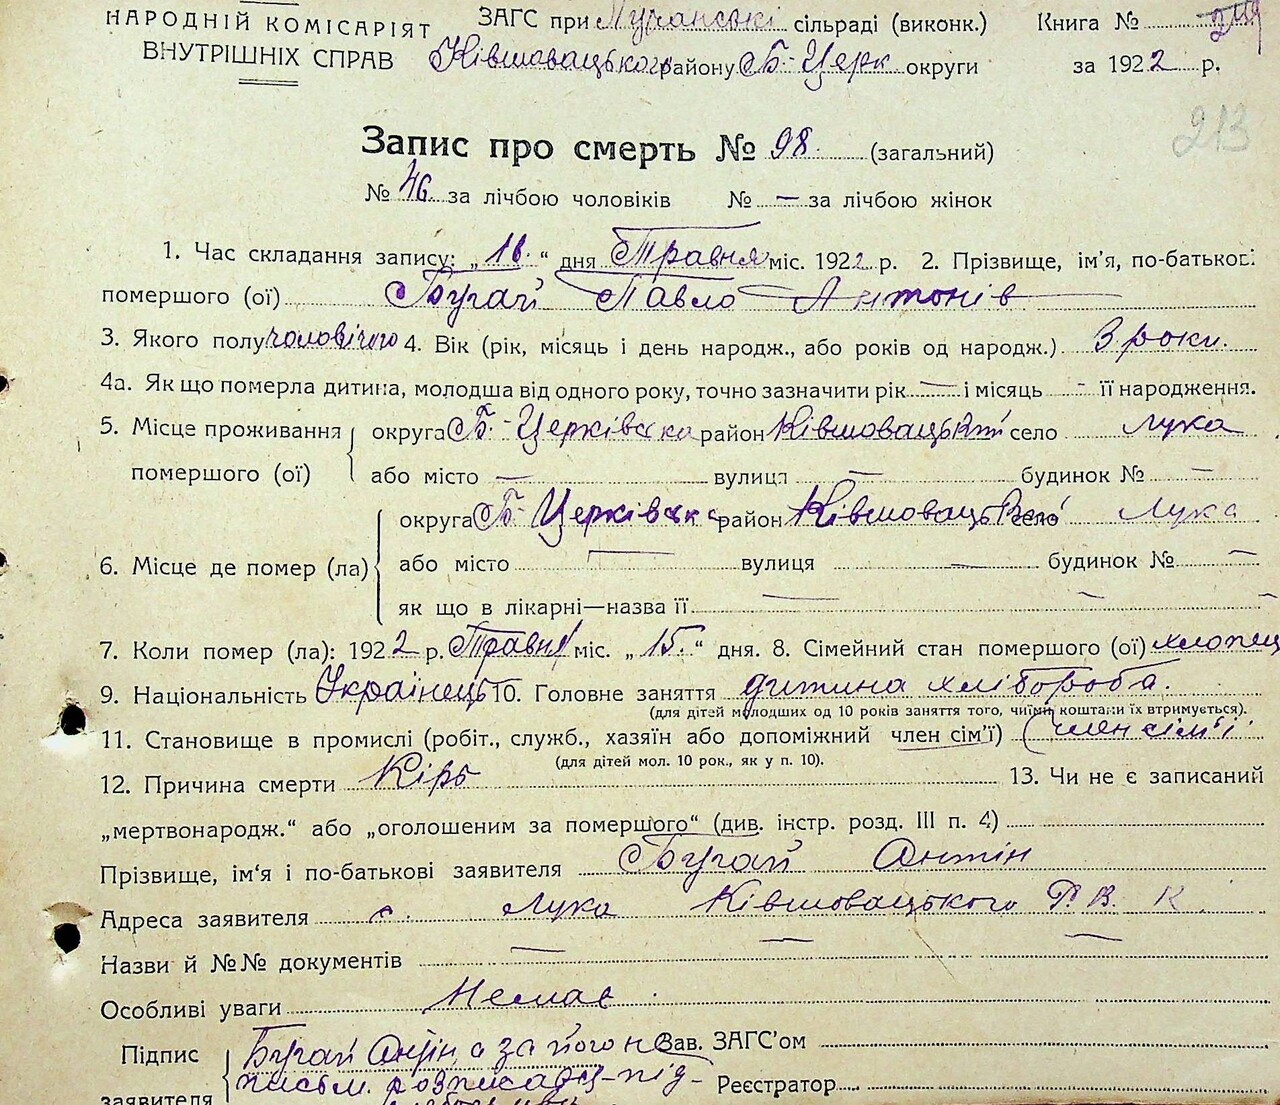 НАРОДНІЙ КОМІСАРІЯТ ЗАГС при Лучанські сільраді (виконк.) Книга №
ВНУТРІШНІХ СПРАВ Ківшовацького району Б-Церк округи за 1922 р.
213
Запис про смерть № 98. (загальний)
№ 46. за лічбою чоловіків № — за лічбою жінок
1. Час складання запису: „16.“ дня Травня міс. 1922 р. 2. Прізвище, ім'я, по-батькові
помершого (ої) Бугай Павло Антонів
3. Якого полу чоловічого 4. Вік (рік, місяць і день народж., або років од народж.) 3 роки.
4а. Як що померла дитина, молодша від одного року, точно зазначити рік — і місяць - її народження.
5. Місце проживання округа Б-Церківська район Ківшовацький село Лука
помершого (ої) або місто — вулиця — будинок № —
округа Б-Церківська район Ківшовацький село Лука
6. Місце де помер (ла) або місто — вулиця — будинок № —
як що в лікарні—назва її —
7. Коли помер (ла): 1922 р. Травня міс. „15.“ дня. 8. Сімейний стан помершого (ої) хлопець
9. Національність Українець 10. Головне заняття дитина хлібороба.
(для дітей молодших од 10 років заняття того, чиїми коштами їх втримується).
11. Становище в промислі (робіт., служб., хазяїн або допоміжний член сім'ї) (член сім'ї
(для дітей мол. 10 рок., як у п. 10).
12. Причина смерти Кірь 13. Чи не є записаний
„мертвонародж.“ або „оголошеним за помершого“ (див. інстр. розд. III п. 4)
Прізвище, ім‘я і по-батькові заявителя Бугай Антін
Адреса заявителя с. Лука Ківшовацького Р. В. К.
Назви й №№ документів — — —
Особливі уваги Немає.
Підпис Бугай Антін а за його не Зав. ЗАГС'ом
письм. розписався-під- Реєстратор
заявителя